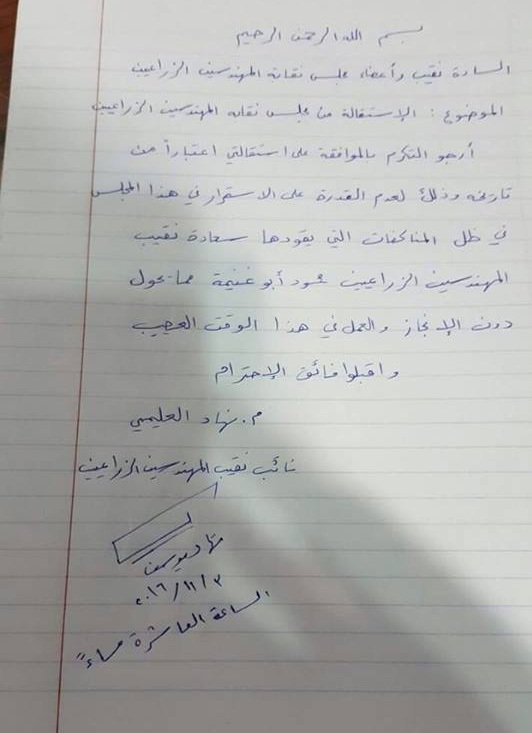 بسم الله الرحمن الرحيم
السادة نقيب وأعضاء مجلس نقابة المهندسين الزراعيين
الموضوع : الإستقالة من مجلس نقابة المهندسين الزراعيين
أرجو التكرم بالموافقة على استقالتي اعتباراً من
تاريخه وذلك لعدم القدرة على الاستمرار في هذا المجلس
في ظل المناكفات التي يقودها سعادة نقيب
المهندسين الزراعيين محمود أبو غنيمة مما يحول
دون الإنجاز والعمل في هذا الوقت العصيب
واقبلوا فائق الإحترام
م. نهاد العليمي
نائب نقيب المهندسين الزراعيين
٢٠١٦/١١/٣
الساعة العاشرة مساءً